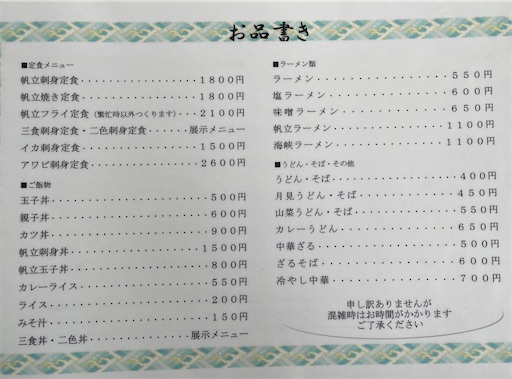 お品書き
■定食メニュー
帆立刺身定食・・・・・・・・・・・・・・・１８００円
帆立焼き定食・・・・・・・・・・・・・・・１８００円
帆立フライ定食（繁忙時以外つくります）・・・２１００円
三食刺身定食・二色刺身定食・・・・・・展示メニュー
イカ刺身定食・・・・・・・・・・・・・・・１５００円
アワビ刺身定食・・・・・・・・・・・・・・２６００円
■ご飯物
玉子丼・・・・・・・・・・・・・・・・・・・５００円
親子丼・・・・・・・・・・・・・・・・・・・６００円
カツ丼・・・・・・・・・・・・・・・・・・・９００円
帆立刺身丼・・・・・・・・・・・・・・・・１５００円
帆立玉子丼・・・・・・・・・・・・・・・・・８００円
カレーライス・・・・・・・・・・・・・・・・５５０円
ライス・・・・・・・・・・・・・・・・・・・２００円
みそ汁・・・・・・・・・・・・・・・・・・・１５０円
三食丼・二色丼・・・・・・・・・・・・展示メニュー
■ラーメン類
ラーメン・・・・・・・・・・・・・・・・５５０円
塩ラーメン・・・・・・・・・・・・・・・６００円
味噌ラーメン・・・・・・・・・・・・・・６５０円
帆立ラーメン・・・・・・・・・・・・・１１００円
海峡ラーメン・・・・・・・・・・・・・１１００円
■うどん・そば・その他
うどん・そば・・・・・・・・・・・・・・４００円
月見うどん・そば・・・・・・・・・・・・４５０円
山菜うどん・そば・・・・・・・・・・・・５５０円
カレーうどん・・・・・・・・・・・・・・６５０円
中華ざる・・・・・・・・・・・・・・・・５００円
ざるそば・・・・・・・・・・・・・・・・６００円
冷やし中華・・・・・・・・・・・・・・・７００円
申し訳ありませんが
混雑時はお時間がかかります
ご了承ください